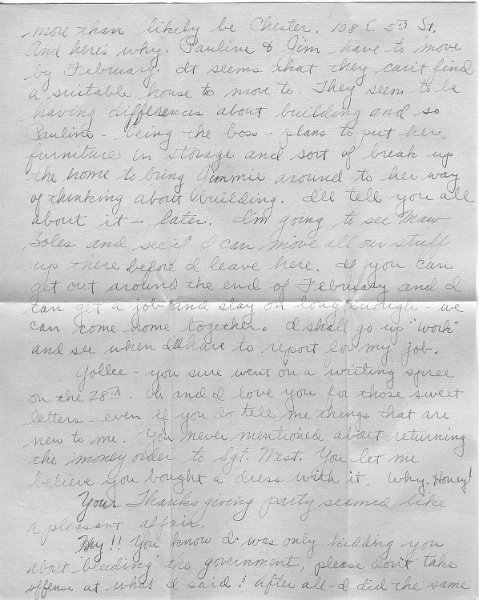 more than likely be Chester. 108 E. 5th St.
And here's why. Pauline & Jim have to move
by February. It seems that they can't find
a suitable house to move to. They seem to be
having differences about building and so
Pauline - being the boss - plans to put her
furniture in storage and sort of break up
the home to bring Jimmie around to her way
of thinking about building. I'll tell you all
about it - later. I'm going to see Maw
Boles and see if I can move all our stuff
up there before I leave here. If you can
get out around the end of February and I
can get a job and stay on long enough - we
can come home together. I shall go up "work"
and see when I'll have to report for my job.
Gollee - you sure went on a writing spree
on the 28th. Oh and I love you for those sweet
letters - even if you do tell me things that are
new to me. You never mentioned about returning
the money order to Sgt. West. You let me
believe you bought a dress with it. Why, Honey!
Your Thanksgiving party seemed like
a pleasant affair.
Hey!! You know I was only kidding you
about bleeding the government, please don't take
offense at what I said! After all - I did the same